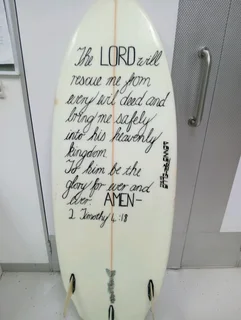 The LORD will
rescue me from
every evil deed and
bring me safely
into his heavenly
kingdom
To him be the
glory for ever and
ever. AMEN-
2 Timothy 4:18